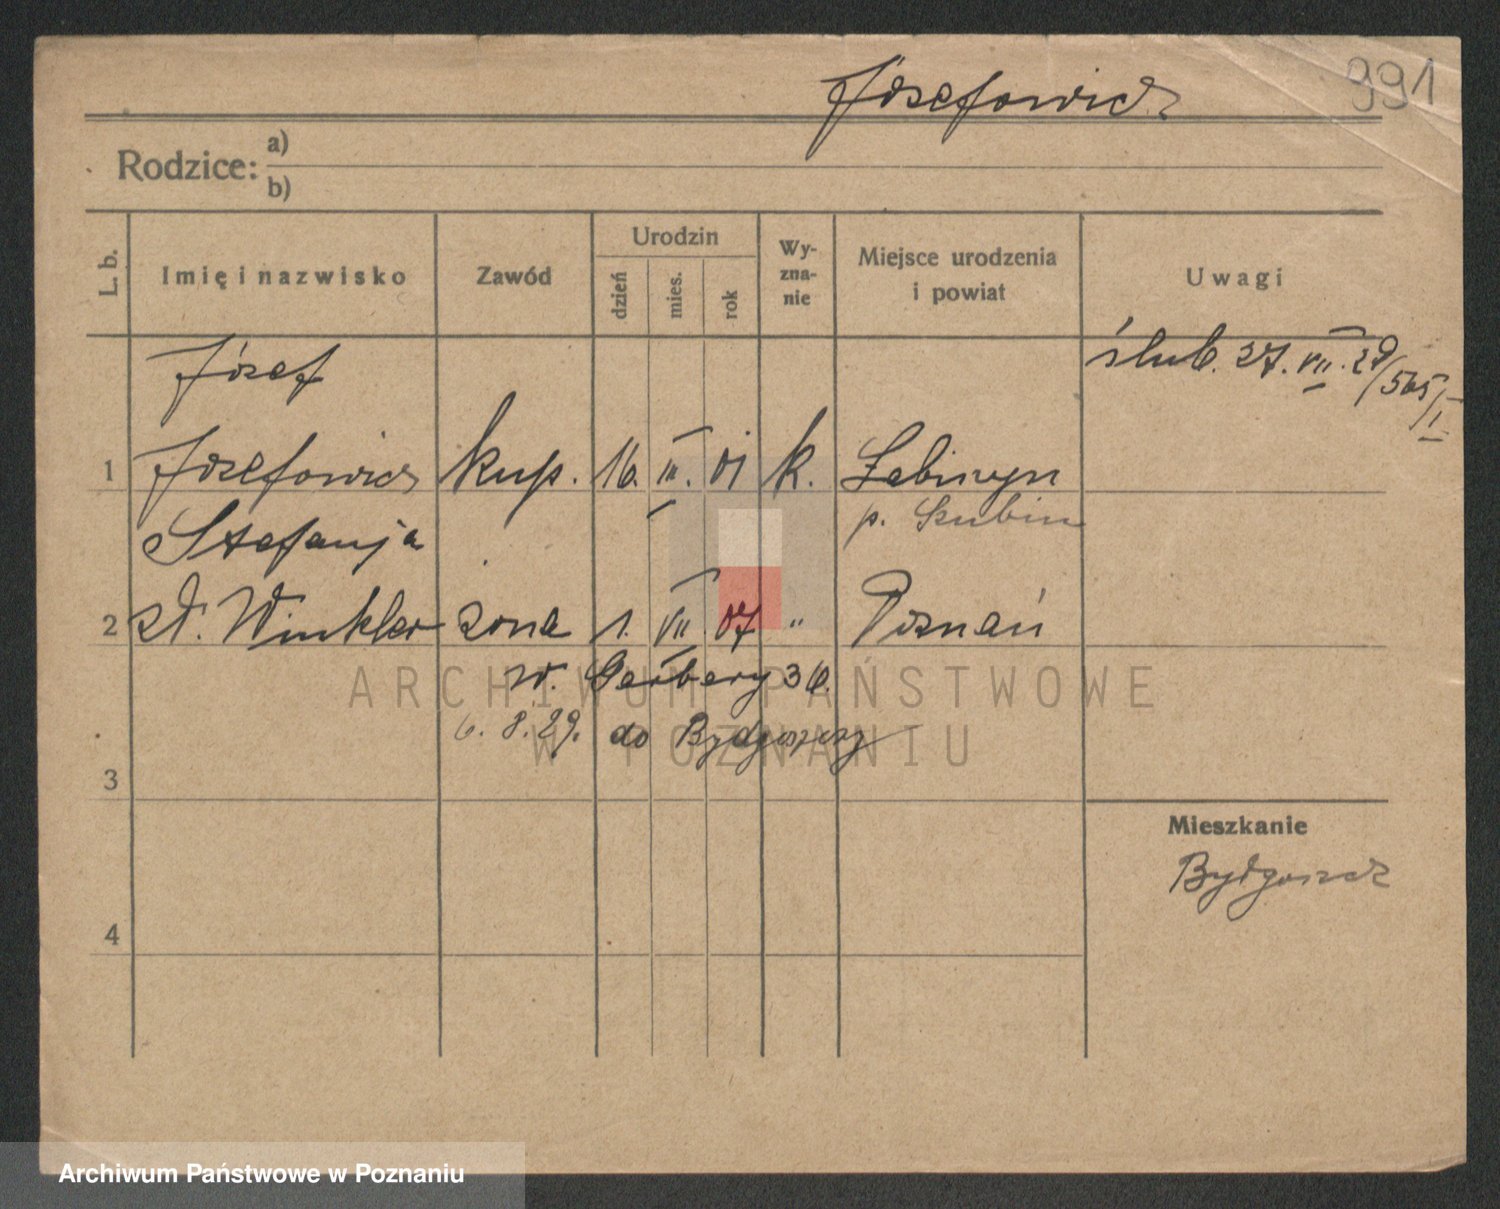 Józefowicz
991
Rodzice: a)
b)
L. b.
Imię i nazwisko
Zawód
Urodzin
dzień
mies.
rok
Wy-
zna-
nie
Miejsce urodzenia
i powiat
Uwagi
Józef
ślub. 27. VII. 29/565/I
1 Józefowicz kup. 16. III. 01 k. Łabiszyn
p. Szubin
Stefanja
2 zd. Winkler żona 1. VII. 07 " Poznań
W. Garbary 36.
6. 8. 29. do Bydgoszczy
3
Mieszkanie
Bydgoszcz
4
ARCHIWUM PAŃSTWOWE
W POZNANIU
Archiwum Państwowe w Poznaniu